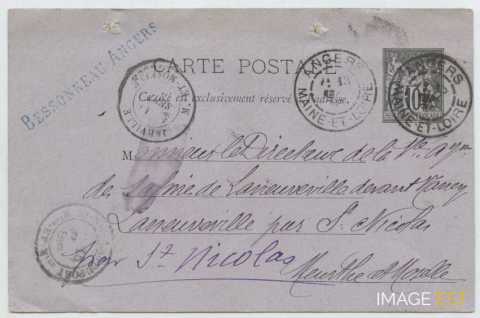 BESSONNEAU ANGERS
CARTE POSTALE
Ce côté est exclusivement réservé à l'adresse.
ANGERS
MAINE-ET-LOIRE
ANGERS
MAINE-ET-LOIRE
10
Monsieur le Directeur de la
des Salines de Laneuveville devant Nancy
Laneuveville par St. Nicolas
par St Nicolas
Meurthe et Moselle
IMAGE'EST